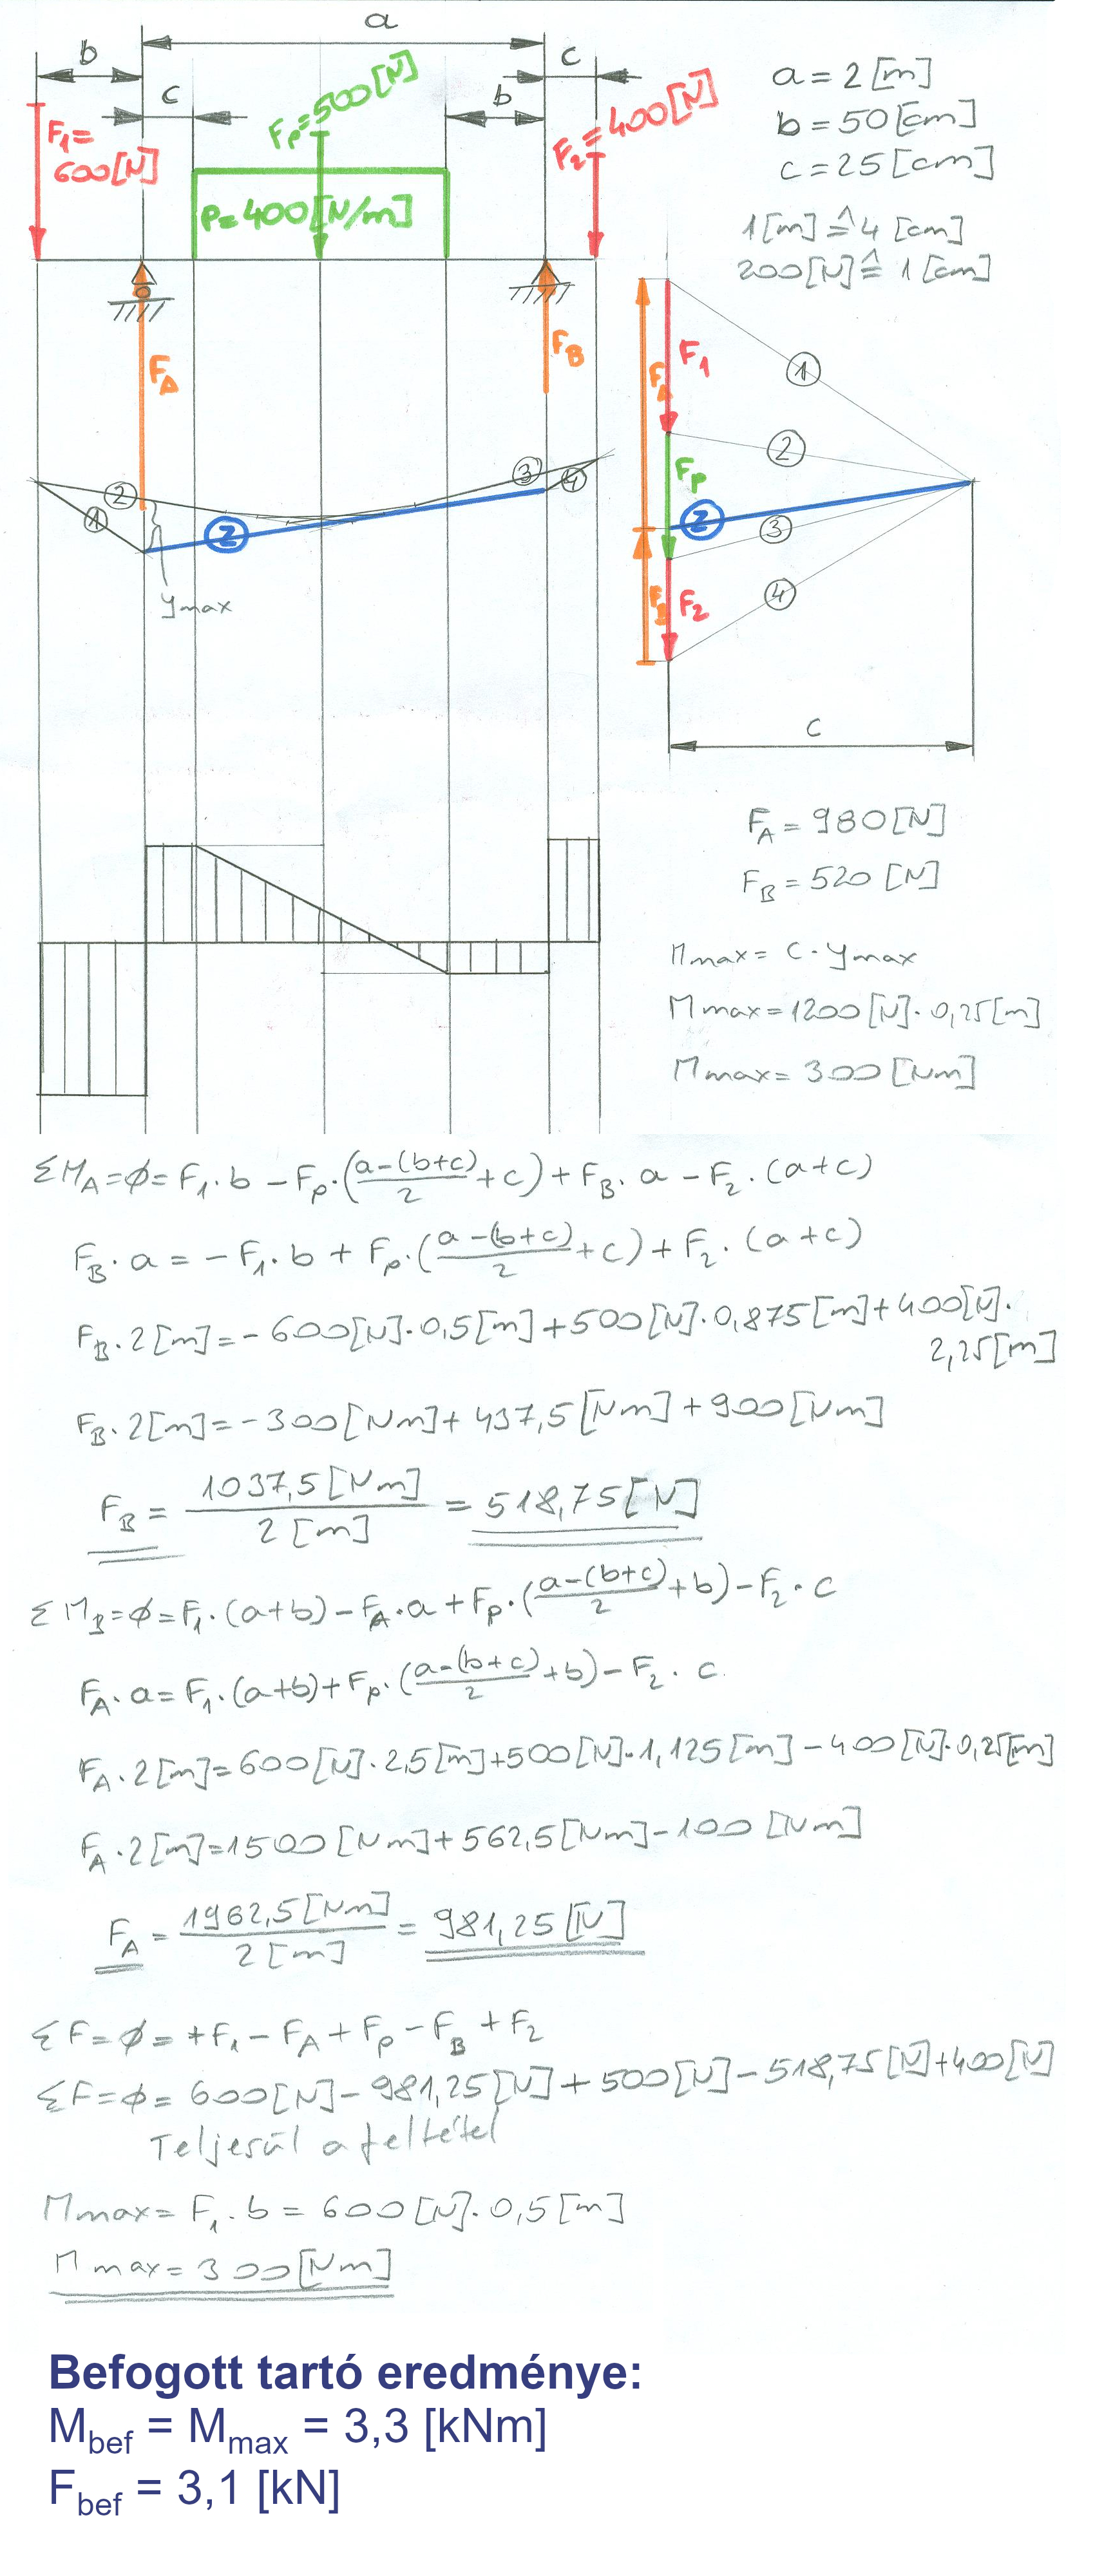 a
b
c
c
b
F₁=
600[N]
Fₚ=500[N]
F₂=400[N]
p=400[N/m]
a=2[m]
b=50[cm]
c=25[cm]
1[m]≙4[cm]
200[N]≙1[cm]
F_A
F_B
1
2
3
4
Z
ymax
F₁
Fₚ
F₂
F_A
F_B
1
2
Z
3
4
c
F_A=980[N]
F_B=520[N]
Mmax=c·ymax
Mmax=1200[N]·0,25[m]
Mmax=300[Nm]
ΣM_A=ϕ=F₁·b-Fₚ·((a-(b+c))/2+c)+F_B·a-F₂·(a+c)
F_B·a=-F₁·b+Fₚ·((a-(b+c))/2+c)+F₂·(a+c)
F_B·2[m]=-600[N]·0,5[m]+500[N]·0,875[m]+400[N]·
2,25[m]
F_B·2[m]=-300[Nm]+437,5[Nm]+900[Nm]
F_B=1037,5[Nm]/2[m]=518,75[N]
ΣM_B=ϕ=F₁·(a+b)-F_A·a+Fₚ·((a-(b+c))/2+b)-F₂·c
F_A·a=F₁·(a+b)+Fₚ·((a-(b+c))/2+b)-F₂·c
F_A·2[m]=600[N]·2,5[m]+500[N]·1,125[m]-400[N]·0,25[m]
F_A·2[m]=1500[Nm]+562,5[Nm]-100[Nm]
F_A=1962,5[Nm]/2[m]=981,25[N]
ΣF=ϕ=+F₁-F_A+Fₚ-F_B+F₂
ΣF=ϕ=600[N]-981,25[N]+500[N]-518,75[N]+400[N]
Teljesül a feltétel
Mmax=F₁·b=600[N]·0,5[m]
Mmax=300[Nm]
Befogott tartó eredménye:
M_bef = M_max = 3,3 [kNm]
F_bef = 3,1 [kN]